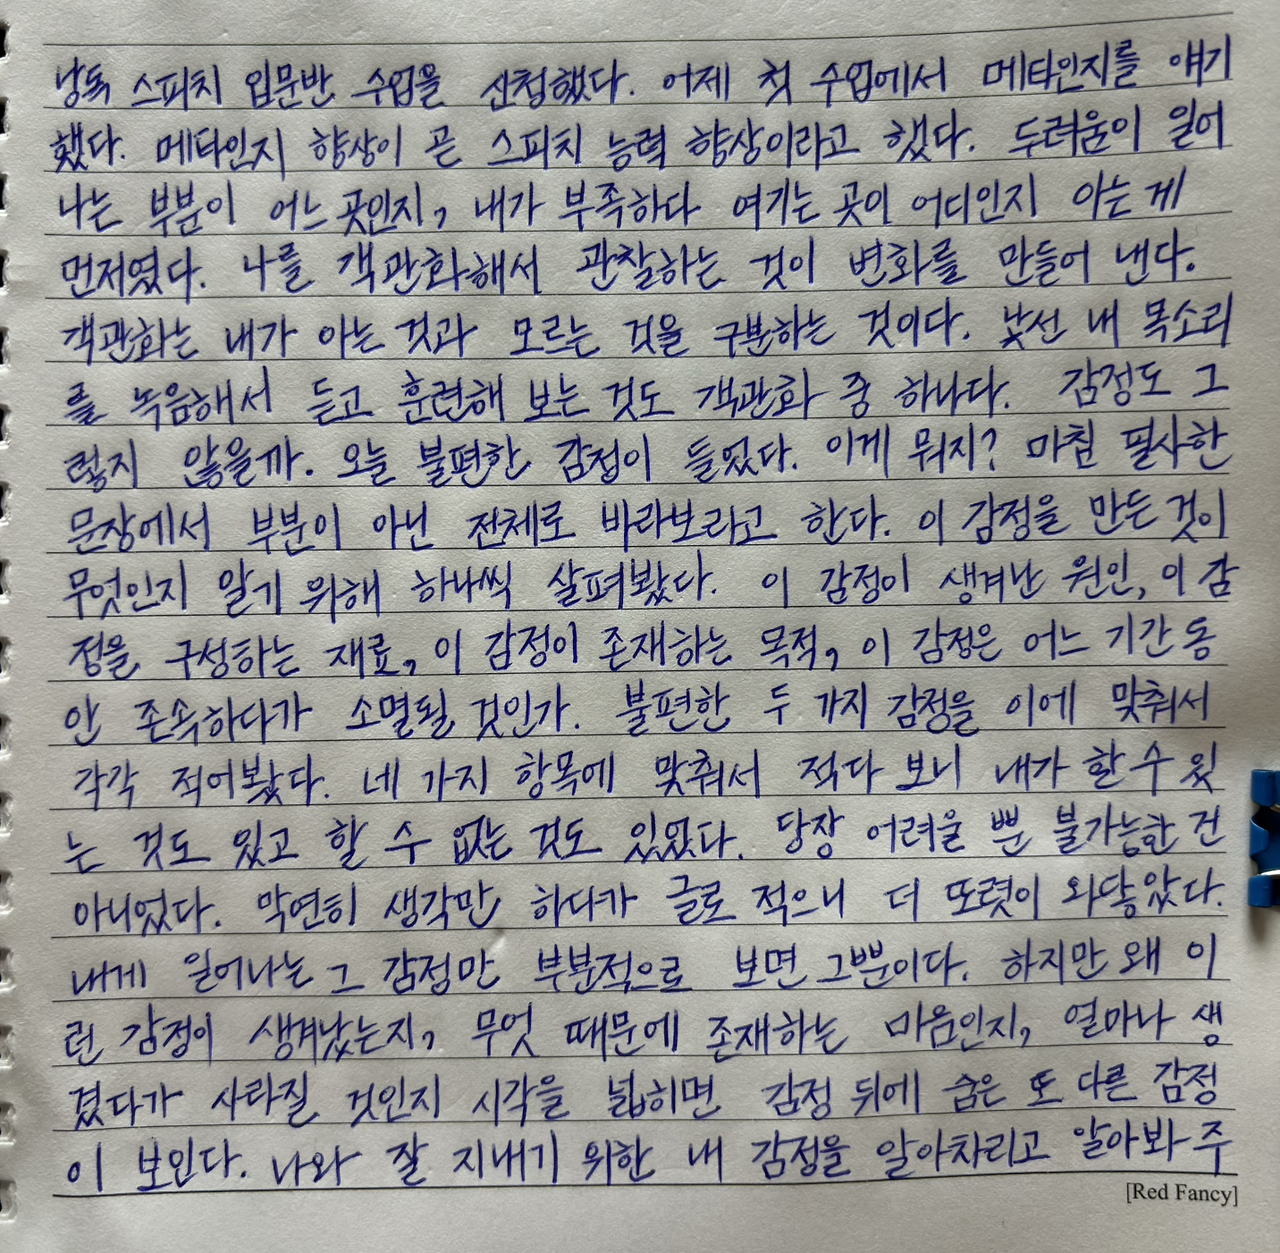 낭독 스피치 입문반 수업을 신청했다. 어제 첫 수업에서 메타인지를 얘기
했다. 메타인지 향상이 곧 스피치 능력 향상이라고 했다. 두려움이 일어
나는 부분이 어느 곳인지, 내가 부족하다 여기는 곳이 어디인지 아는 게
먼저였다. 나를 객관화해서 관찰하는 것이 변화를 만들어 낸다.
객관화는 내가 아는 것과 모르는 것을 구분하는 것이다. 낯선 내 목소리
를 녹음해서 듣고 훈련해 보는 것도 객관화 중 하나다. 감정도 그
렇지 않을까. 오늘 불편한 감정이 들었다. 이게 뭐지? 마침 필사한
문장에서 부분이 아닌 전체로 바라보라고 한다. 이 감정을 만든 것이
무엇인지 알기 위해 하나씩 살펴봤다. 이 감정이 생겨난 원인, 이 감
정을 구성하는 재료, 이 감정이 존재하는 목적, 이 감정은 어느 기간 동
안 존속하다가 소멸될 것인가. 불편한 두 가지 감정을 이에 맞춰서
각각 적어봤다. 네 가지 항목에 맞춰서 적다 보니 내가 할 수 있
는 것도 있고 할 수 없는 것도 있었다. 당장 어려울 뿐 불가능한 건
아니었다. 막연히 생각만 하다가 글로 적으니 더 또렷이 와닿았다.
내게 일어나는 그 감정만 부분적으로 보면 그뿐이다. 하지만 왜 이
런 감정이 생겨났는지, 무엇 때문에 존재하는 마음인지, 얼마나 생
겼다가 사라질 것인지 시각을 넓히면 감정 뒤에 숨은 또 다른 감정
이 보인다. 나와 잘 지내기 위한 내 감정을 알아차리고 알아봐 주
[Red Fancy]